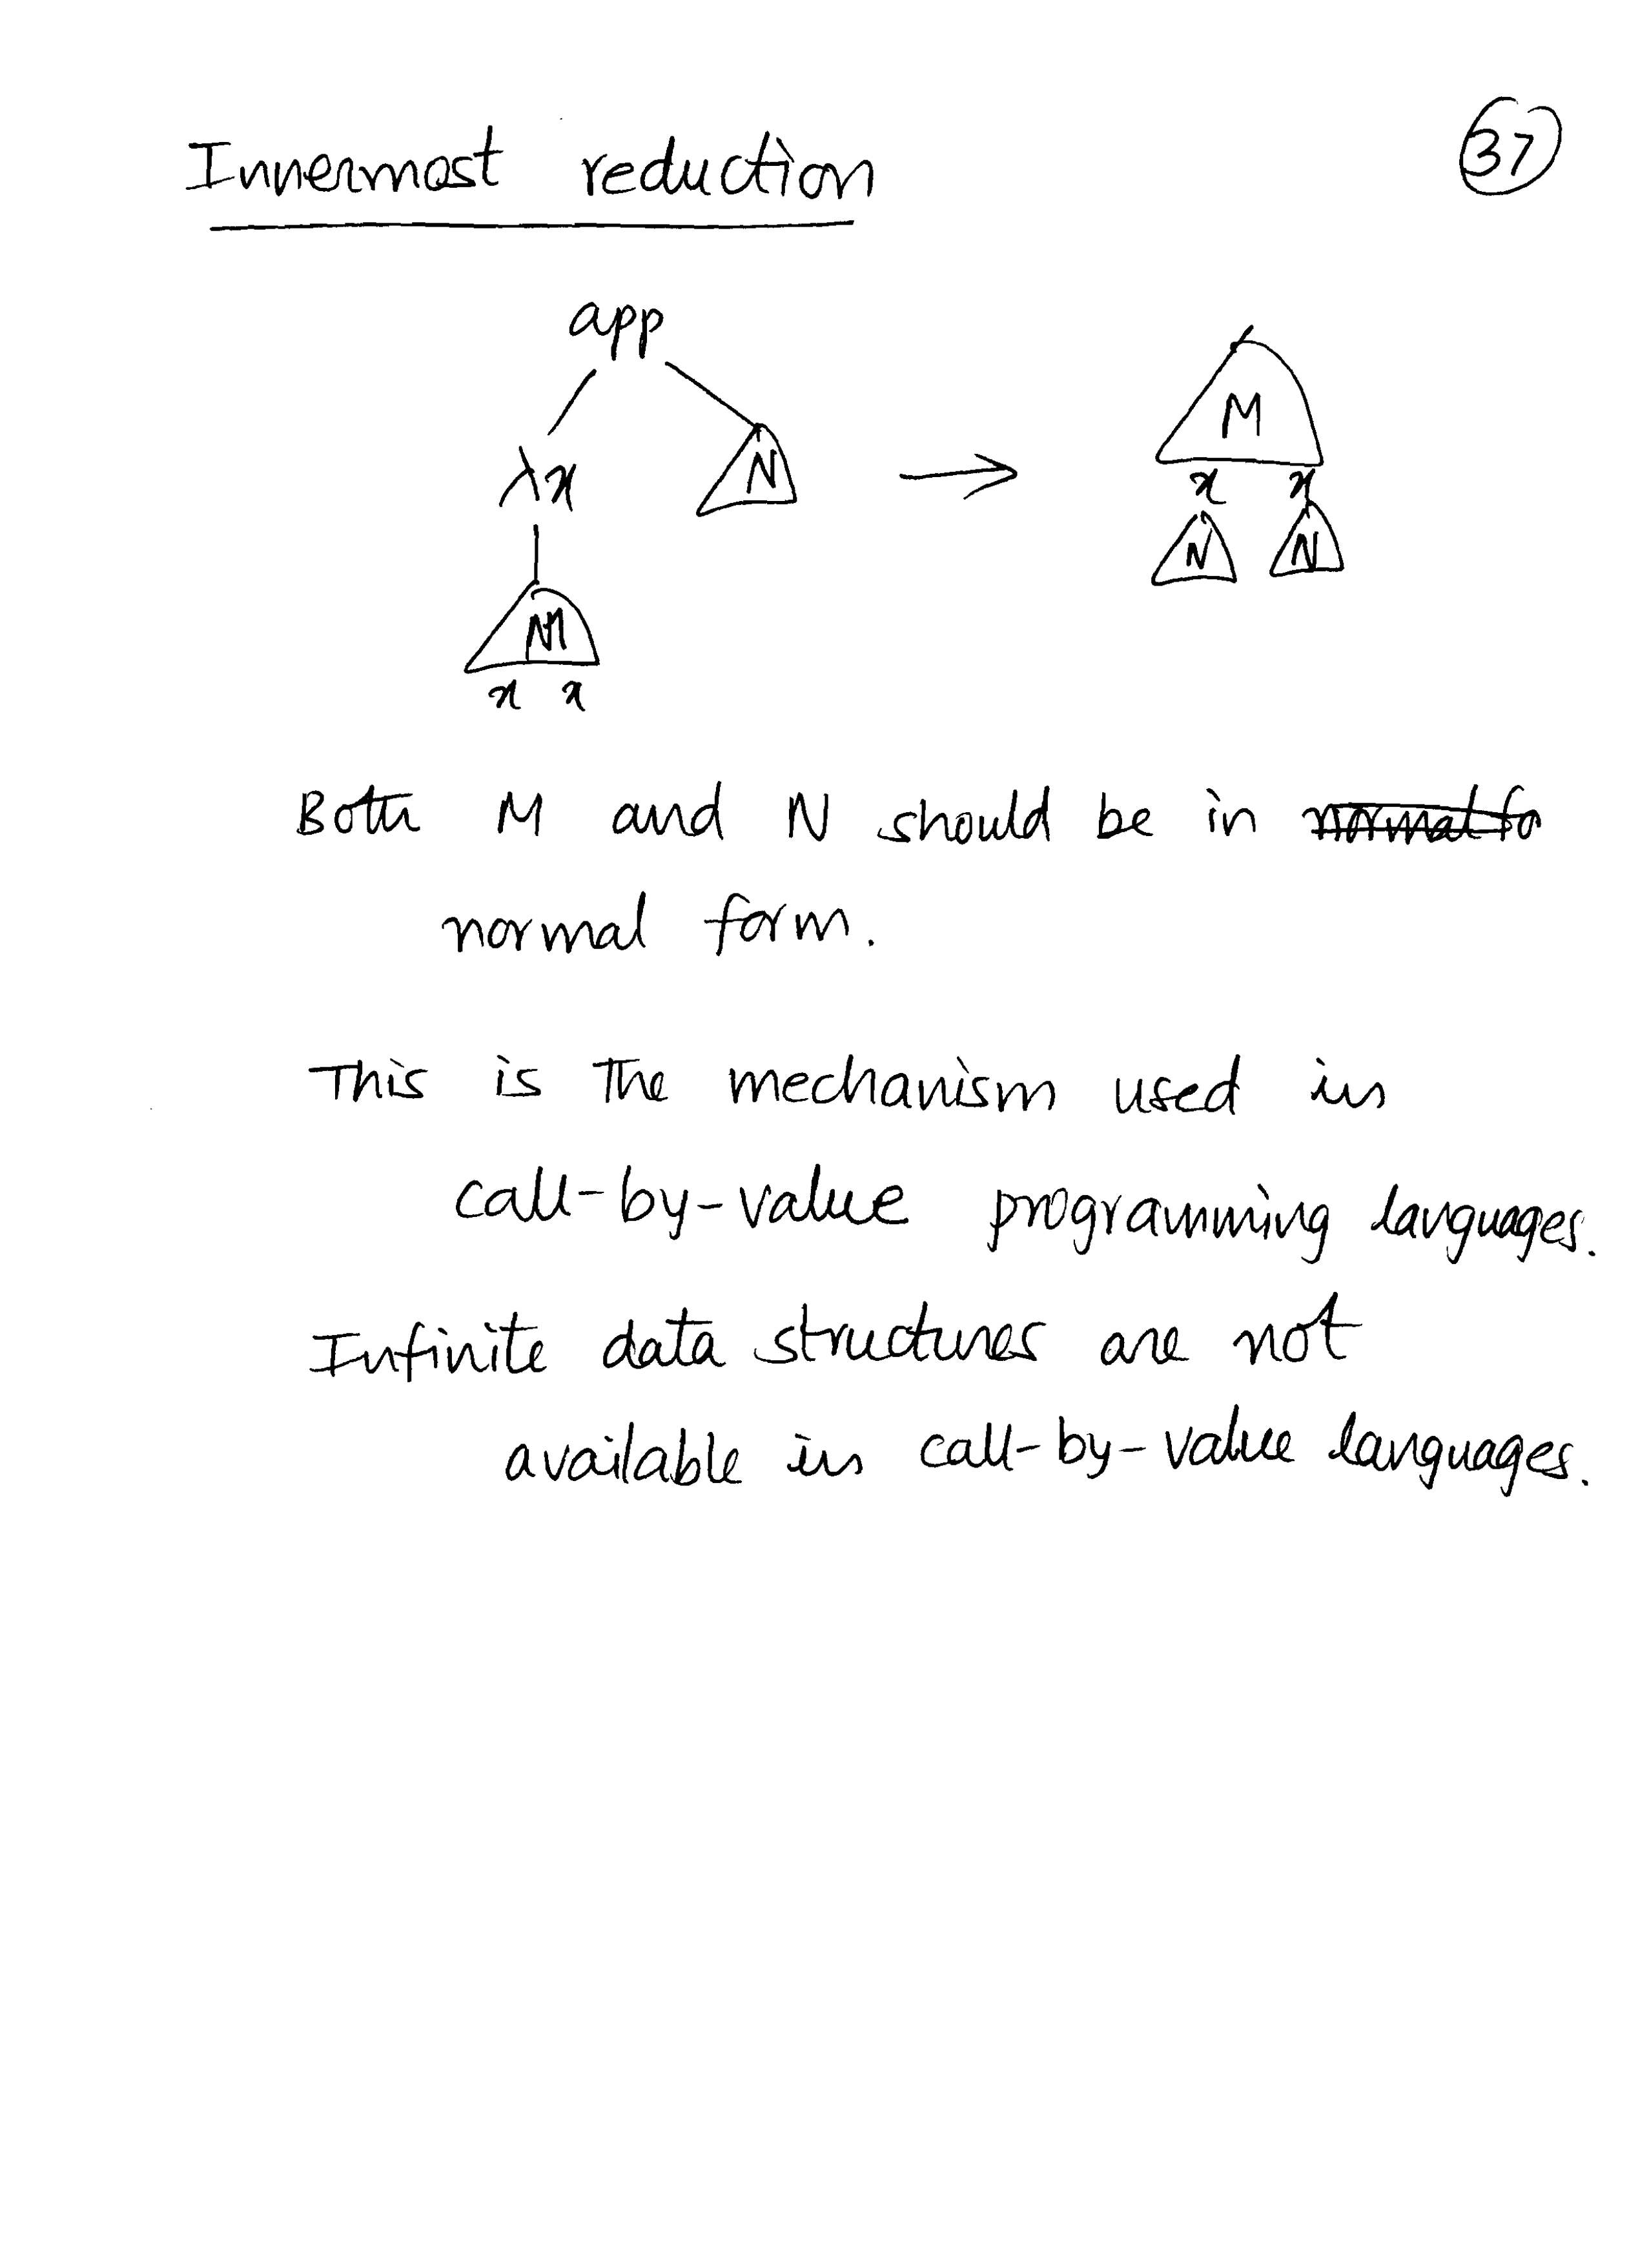 Innermost reduction
37
app
λx
N
M
x x
M
x x
N N
Both M and N should be in normal fo
normal form.
This is the mechanism used in
call-by-value programming languages.
Infinite data structures are not
available in call-by-value languages.